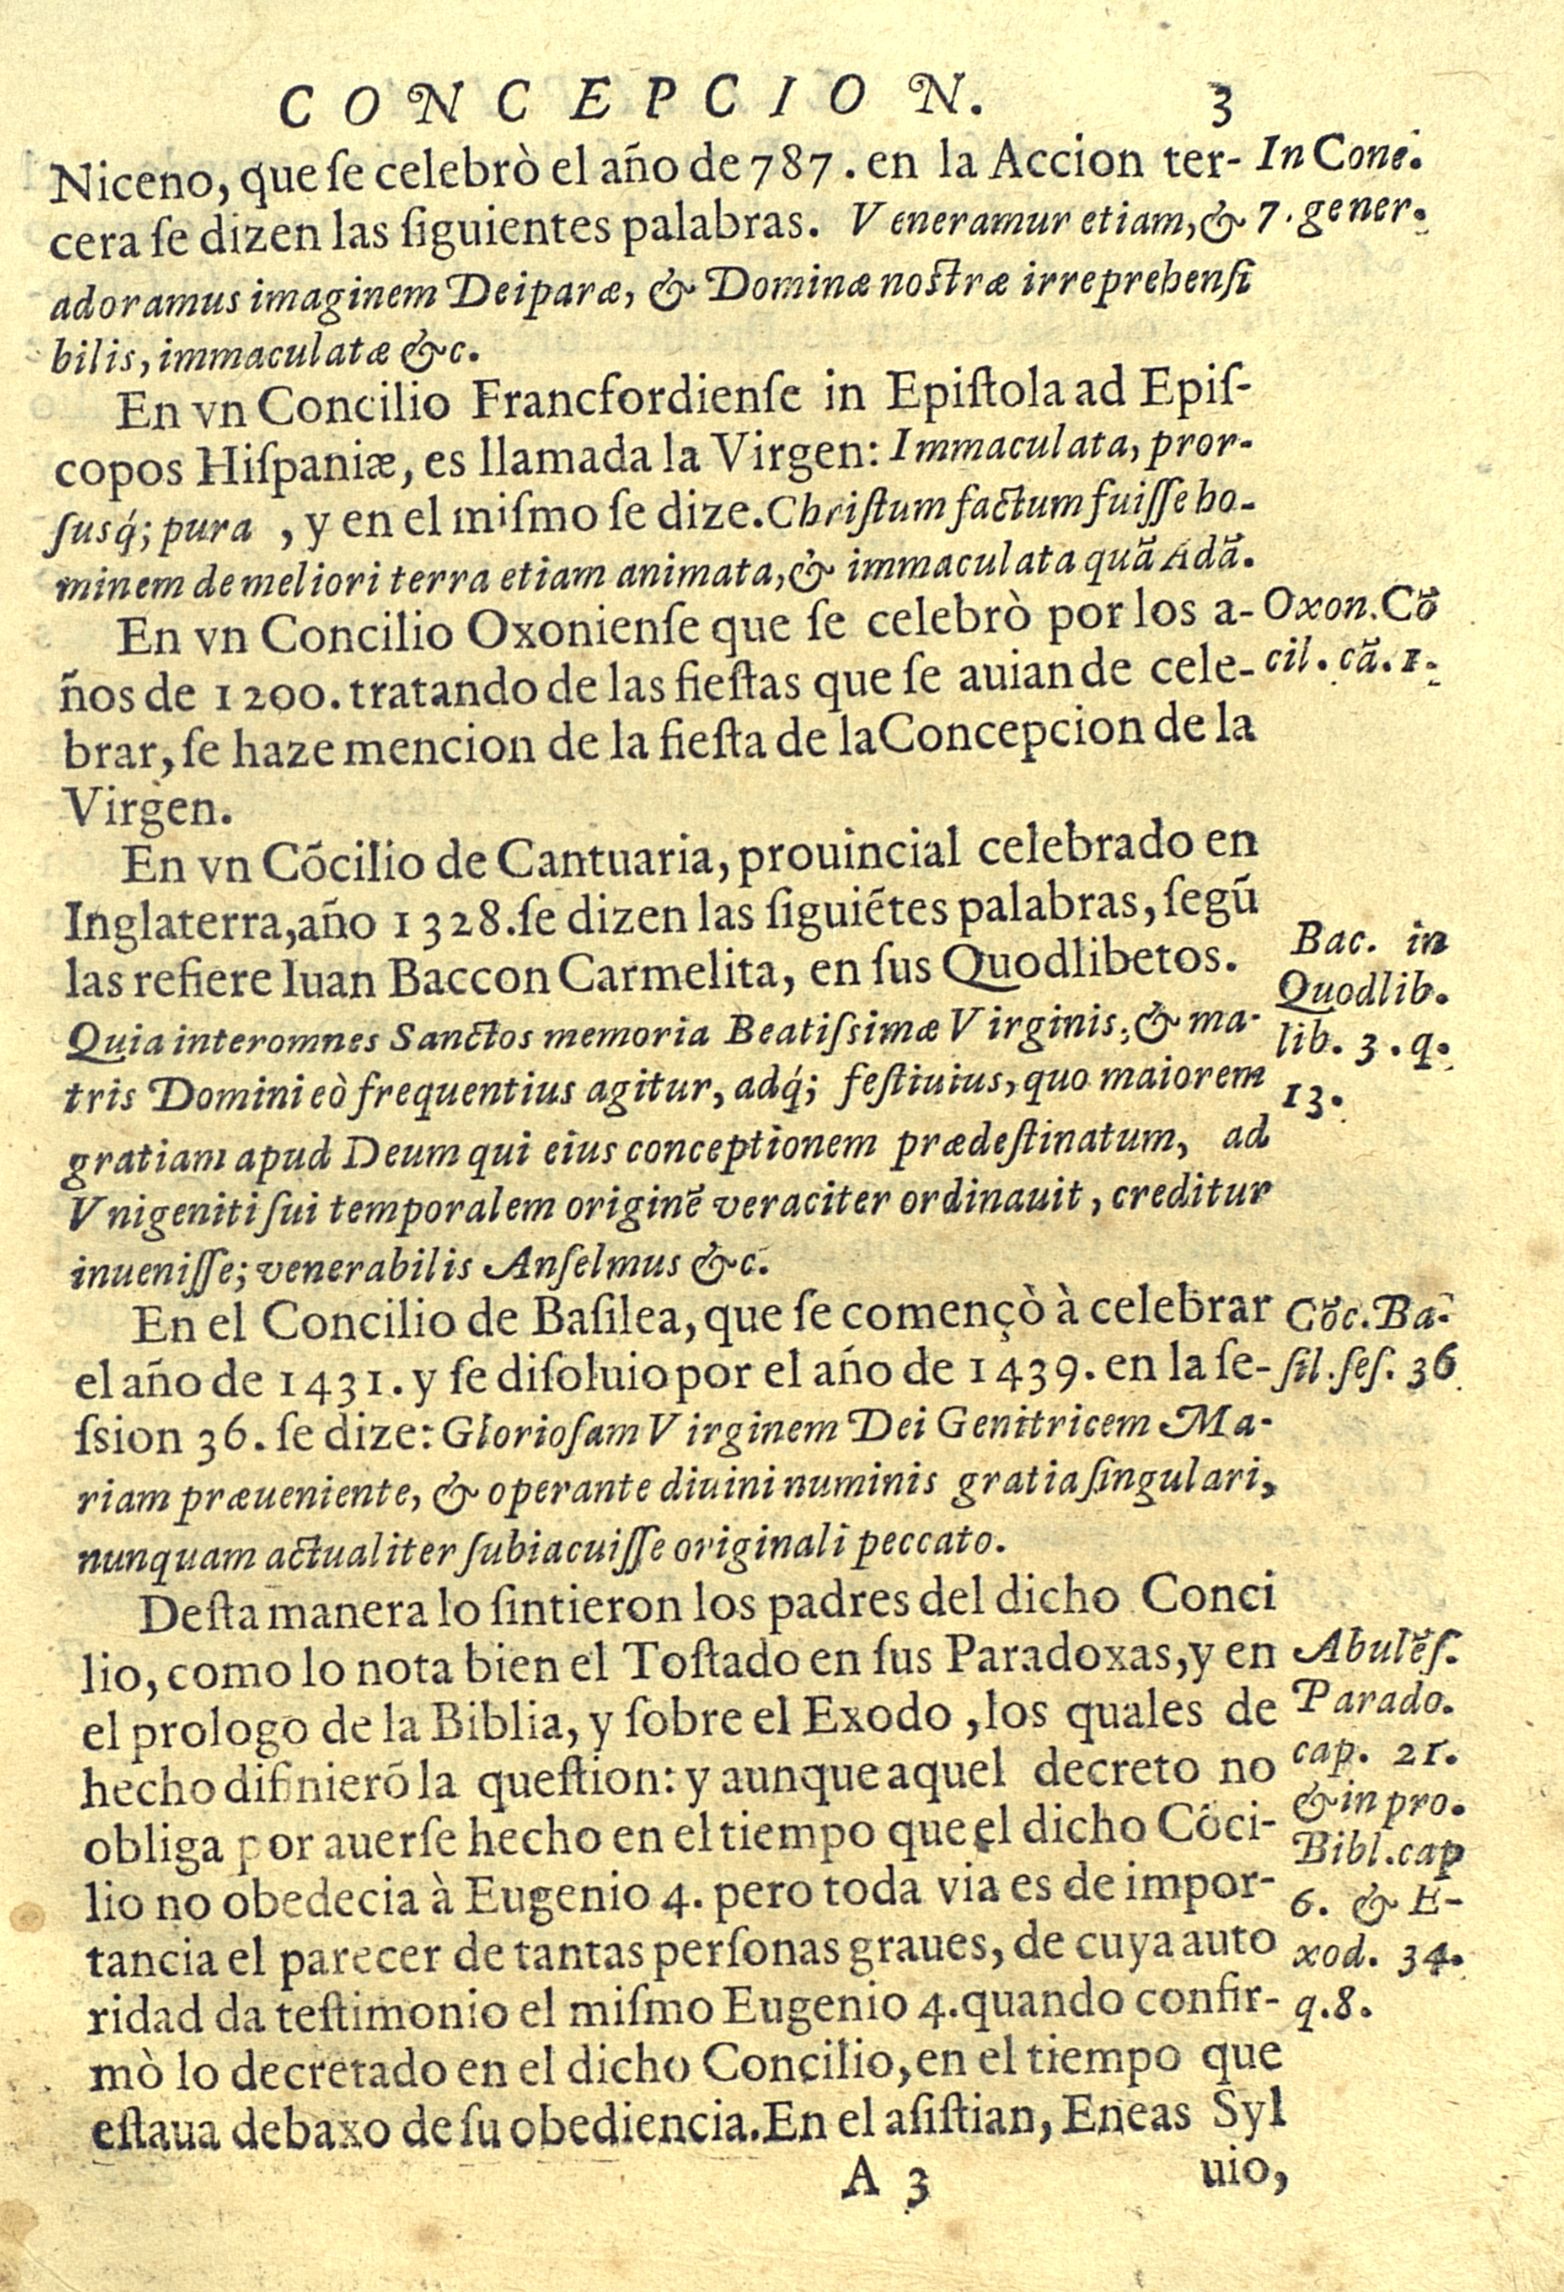 CONCEPCION. 3
Niceno, que ſe celebrò el año de 787. en la Accion ter-
cera ſe dizen las ſiguientes palabras. Veneramur etiam, &
adoramus imaginem Deiparæ, & Dominæ nostræ irreprehenſi
bilis, immaculatæ &c.
En vn Concilio Francfordienſe in Epiſtola ad Epiſ-
copos Hiſpaniæ, es llamada la Virgen: Immaculata, pror-
ſusq́; pura , y en el miſmo ſe dize. Chriſtum factum fuiſſe ho-
minem de meliori terra etiam animata, & immaculata quã Adã.
En vn Concilio Oxonienſe que ſe celebrò por los a-
ños de 1200. tratando de las fieſtas que ſe auian de cele-
brar, ſe haze mencion de la fieſta de la Concepcion de la
Virgen.
En vn Cõcilio de Cantuaria, prouincial celebrado en
Inglaterra, año 1328. ſe dizen las ſiguiẽtes palabras, ſegũ
las refiere Iuan Baccon Carmelita, en ſus Quodlibetos.
Quia inter omnes Sanctos memoria Beatiſsimæ Virginis, & ma-
tris Domini eò frequentius agitur, adq́; feſtiuius, quo maiorem
gratiam apud Deum qui eius conceptionem prædeſtinatum, ad
Vnigeniti ſui temporalem originẽ veraciter ordinauit, creditur
inueniſſe; venerabilis Anſelmus &c.
En el Concilio de Baſilea, que ſe començò à celebrar
el año de 1431. y ſe diſoluio por el año de 1439. en la ſe-
ſsion 36. ſe dize: Glorioſam Virginem Dei Genitricem Ma-
riam præueniente, & operante diuini numinis gratia ſingulari,
nunquam actualiter ſubiacuiſſe originali peccato.
Deſta manera lo ſintieron los padres del dicho Conci
lio, como lo nota bien el Toſtado en ſus Paradoxas, y en
el prologo de la Biblia, y ſobre el Exodo, los quales de
hecho difinierõ la queſtion: y aunque aquel decreto no
obliga por auerſe hecho en el tiempo que el dicho Cõci-
lio no obedecia à Eugenio 4. pero toda via es de impor-
tancia el parecer de tantas perſonas graues, de cuya auto
ridad da teſtimonio el miſmo Eugenio 4. quando confir-
mò lo decretado en el dicho Concilio, en el tiempo que
eſtaua debaxo de ſu obediencia. En el aſiſtian, Eneas Syl
A 3 uio,
In Conc.
7. gener.
Oxon. Cõ
cil. cã. 1.
Bac. in
Quodlib.
lib. 3. q.
13.
Cõc. Ba-
ſil. ſeſ. 36
Abulẽſ.
Parado.
cap. 21.
& in pro.
Bibl. cap
6. & E-
xod. 34.
q. 8.